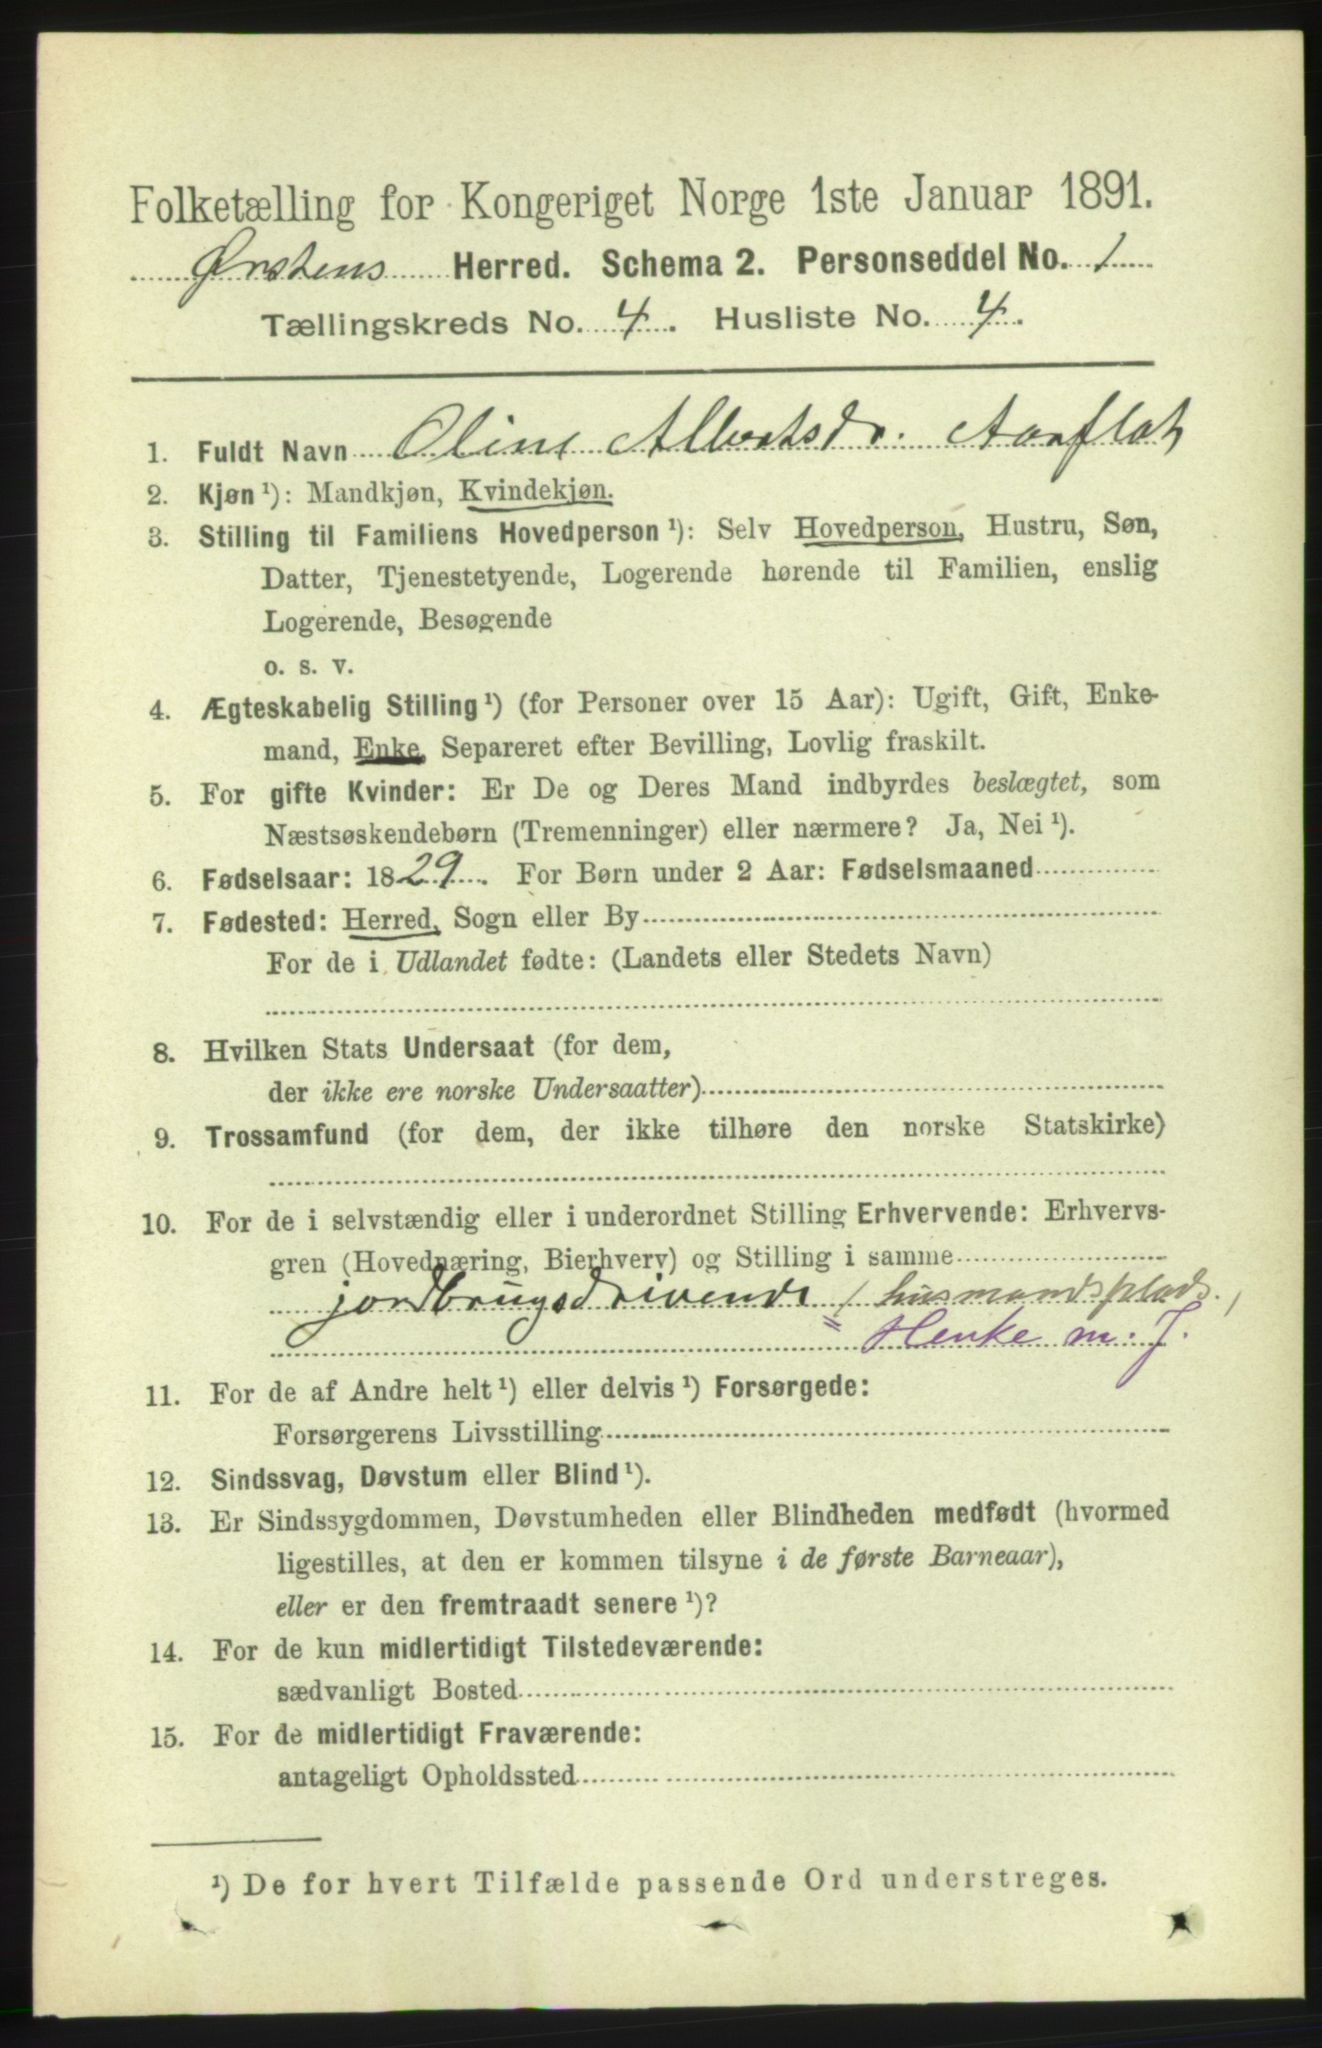 Folketælling for Kongeriget Norge 1ste Januar 1891.
Ørstens Herred. Schema 2. Personseddel No. 1
Tællingskreds No. 4. Husliste No. 4.
1. Fuldt Navn Oline Albertsdr. Aarflot
2. Kjøn ¹): Mandkjøn, Kvindekjøn.
3. Stilling til Familiens Hovedperson ¹): Selv Hovedperson, Hustru, Søn,
Datter, Tjenestetyende, Logerende hørende til Familien, enslig
Logerende, Besøgende
o. s. v.
4. Ægteskabelig Stilling ¹) (for Personer over 15 Aar): Ugift, Gift, Enke-
mand, Enke, Separeret efter Bevilling, Lovlig fraskilt.
5. For gifte Kvinder: Er De og Deres Mand indbyrdes beslægtet, som
Næstsøskendebørn (Tremenninger) eller nærmere? Ja, Nei ¹).
6. Fødselsaar: 1829. For Børn under 2 Aar: Fødselsmaaned
7. Fødested: Herred, Sogn eller By
For de i Udlandet fødte: (Landets eller Stedets Navn)
8. Hvilken Stats Undersaat (for dem,
der ikke ere norske Undersaatter)
9. Trossamfund (for dem, der ikke tilhøre den norske Statskirke)
10. For de i selvstændig eller i underordnet Stilling Erhvervende: Erhvervs-
gren (Hovednæring, Bierhverv) og Stilling i samme
jordbrugsdrivende / husmandsplads. /
= Henke m. J.
11. For de af Andre helt ¹) eller delvis ¹) Forsørgede:
Forsørgerens Livsstilling
12. Sindssvag, Døvstum eller Blind ¹).
13. Er Sindssygdommen, Døvstumheden eller Blindheden medfødt (hvormed
ligestilles, at den er kommen tilsyne i de første Barneaar),
eller er den fremtraadt senere ¹)?
14. For de kun midlertidigt Tilstedeværende:
sædvanligt Bosted
15. For de midlertidigt Fraværende:
antageligt Opholdssted
¹) De for hvert Tilfælde passende Ord understreges.